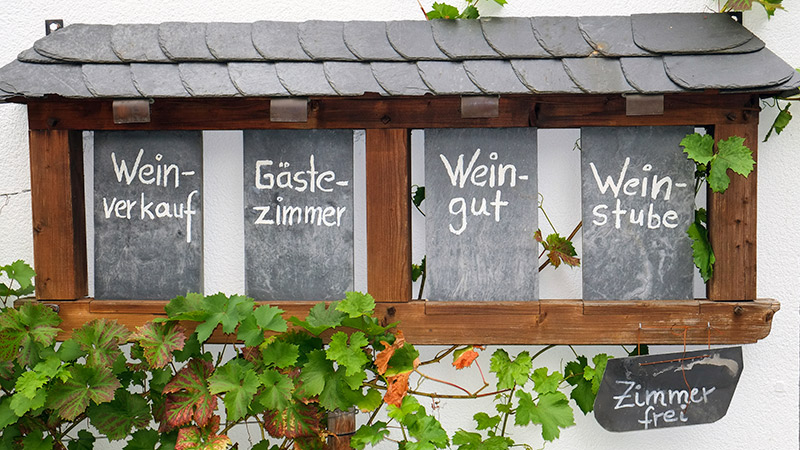 Wein-
verkauf
Gäste-
zimmer
Wein-
gut
Wein-
stube
Zimmer
frei